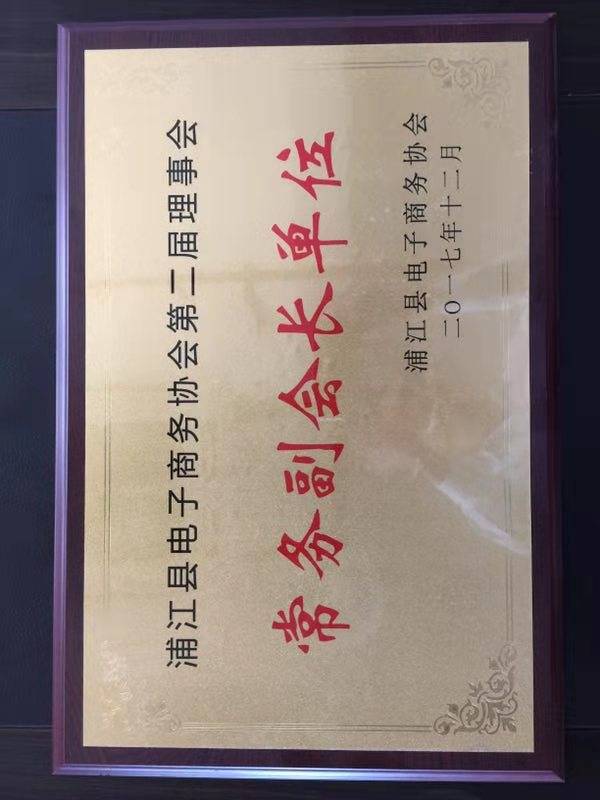 浦江县电子商务协会第二届理事会
常务副会长单位
浦江县电子商务协会
二〇一七年十二月